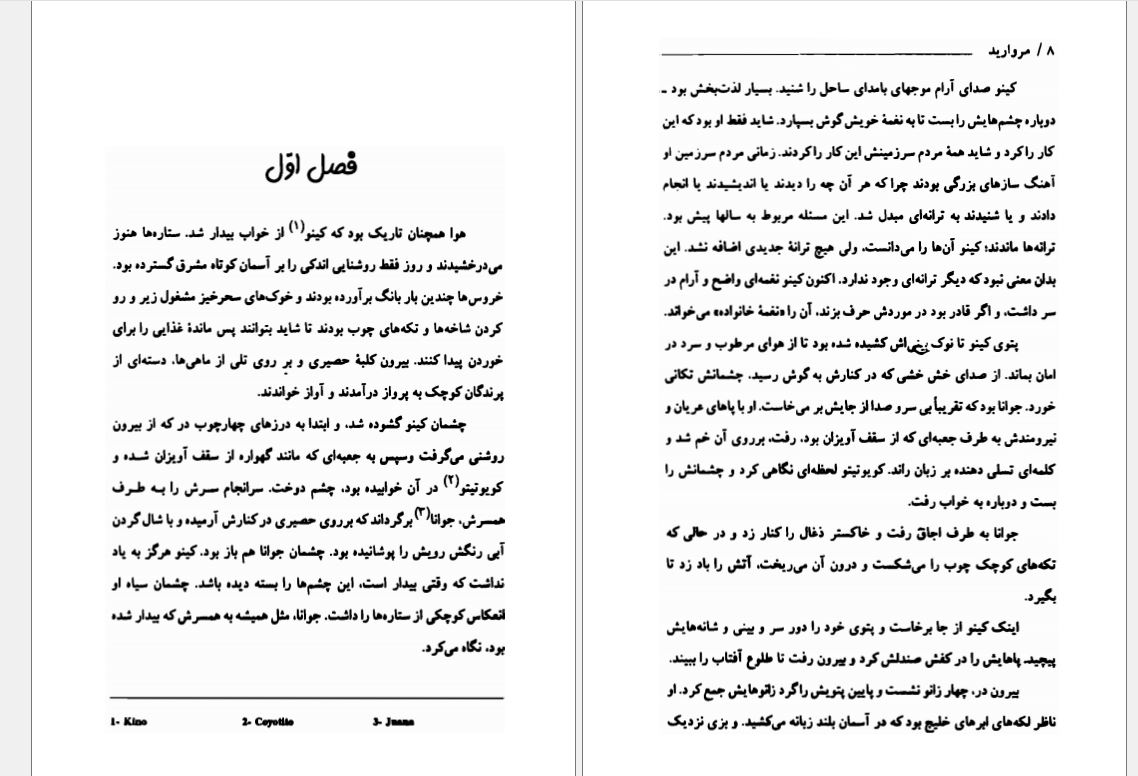 فصل اوّل
هوا همچنان تاریک بود که کینو(۱) از خواب بیدار شد. ستاره‌ها هنوز
می‌درخشیدند و روز فقط روشنایی اندکی را بر آسمان کوتاه مشرق گسترده بود.
خروس‌ها چندین بار بانگ برآورده بودند و خوک‌های سحرخیز مشغول زیر و رو
کردن شاخه‌ها و تکه‌های چوب بودند تا شاید بتوانند پس ماندهٔ غذایی را برای
خوردن پیدا کنند. بیرون کلبهٔ حصیری و بر روی تلی از ماهی‌ها، دسته‌ای از
پرندگان کوچک به پرواز درآمدند و آواز خواندند.
چشمان کینو گشوده شد، و ابتدا به درزهای چهارچوب در که از بیرون
روشنی می‌گرفت وسپس به جعبه‌ای که مانند گهواره از سقف آویزان شده و
کویوتیتو(۲) در آن خوابیده بود، چشم دوخت. سرانجام سرش را به طرف
همسرش، جوانا(۳) برگرداند که برروی حصیری در کنارش آرمیده و با شال گردن
آبی رنگش رویش را پوشانیده بود. چشمان جوانا هم باز بود. کینو هرگز به یاد
نداشت که وقتی بیدار است، این چشم‌ها را بسته دیده باشد. چشمان سیاه او
انعکاس کوچکی از ستاره‌ها را داشت. جوانا، مثل همیشه به همسرش که بیدار شده
بود، نگاه می‌کرد.
1- Kino 2- Coyotito 3- Juana
۸ / مروارید
کینو صدای آرام موجهای بامدای ساحل را شنید. بسیار لذت‌بخش بود ـ
دوباره چشم‌هایش را بست تا به نغمهٔ خویش گوش بسپارد. شاید فقط او بود که این
کار را کرد و شاید همهٔ مردم سرزمینش این کار را کردند. زمانی مردم سرزمین او
آهنگ سازهای بزرگی بودند چرا که هر آن چه را دیدند یا اندیشیدند یا انجام
دادند و یا شنیدند به ترانه‌ای مبدل شد. این مسئله مربوط به سالها پیش بود.
ترانه‌ها ماندند؛ کینو آن‌ها را می‌دانست، ولی هیچ ترانهٔ جدیدی اضافه نشد. این
بدان معنی نبود که دیگر ترانه‌ای وجود ندارد. اکنون کینو نغمه‌ای واضح و آرام در
سر داشت، و اگر قادر بود در موردش حرف بزند، آن را «نغمهٔ خانواده» می‌خواند.
پتوی کینو تا نوک بینی‌اش کشیده شده بود تا از هوای مرطوب و سرد در
امان بماند. از صدای خش خشی که در کنارش به گوش رسید. چشمانش تکانی
خورد. جوانا بود که تقریبأ بی سرو صدا از جایش بر می‌خاست. او با پاهای عریان و
نیرومندش به طرف جعبه‌ای که از سقف آویزان بود، رفت، برروی آن خم شد و
کلمه‌ای تسلی دهنده بر زبان راند. کویوتیتو لحظه‌ای نگاهی کرد و چشمانش را
بست و دوباره به خواب رفت.
جوانا به طرف اجاق رفت و خاکستر ذغال را کنار زد و در حالی که
تکه‌های کوچک چوب را می‌شکست و درون آن می‌ریخت، آتش را باد زد تا
بگیرد.
اینک کینو از جا برخاست و پتوی خود را دور سر و بینی و شانه‌هایش
پیچید. پاهایش را در کفش صندلش کرد و بیرون رفت تا طلوع آفتاب را ببیند.
بیرون در، چهار زانو نشست و پایین پتویش را گرد زانوهایش جمع کرد. او
ناظر لکه‌های ابرهای خلیج بود که در آسمان بلند زبانه می‌کشید. و بزی نزدیک